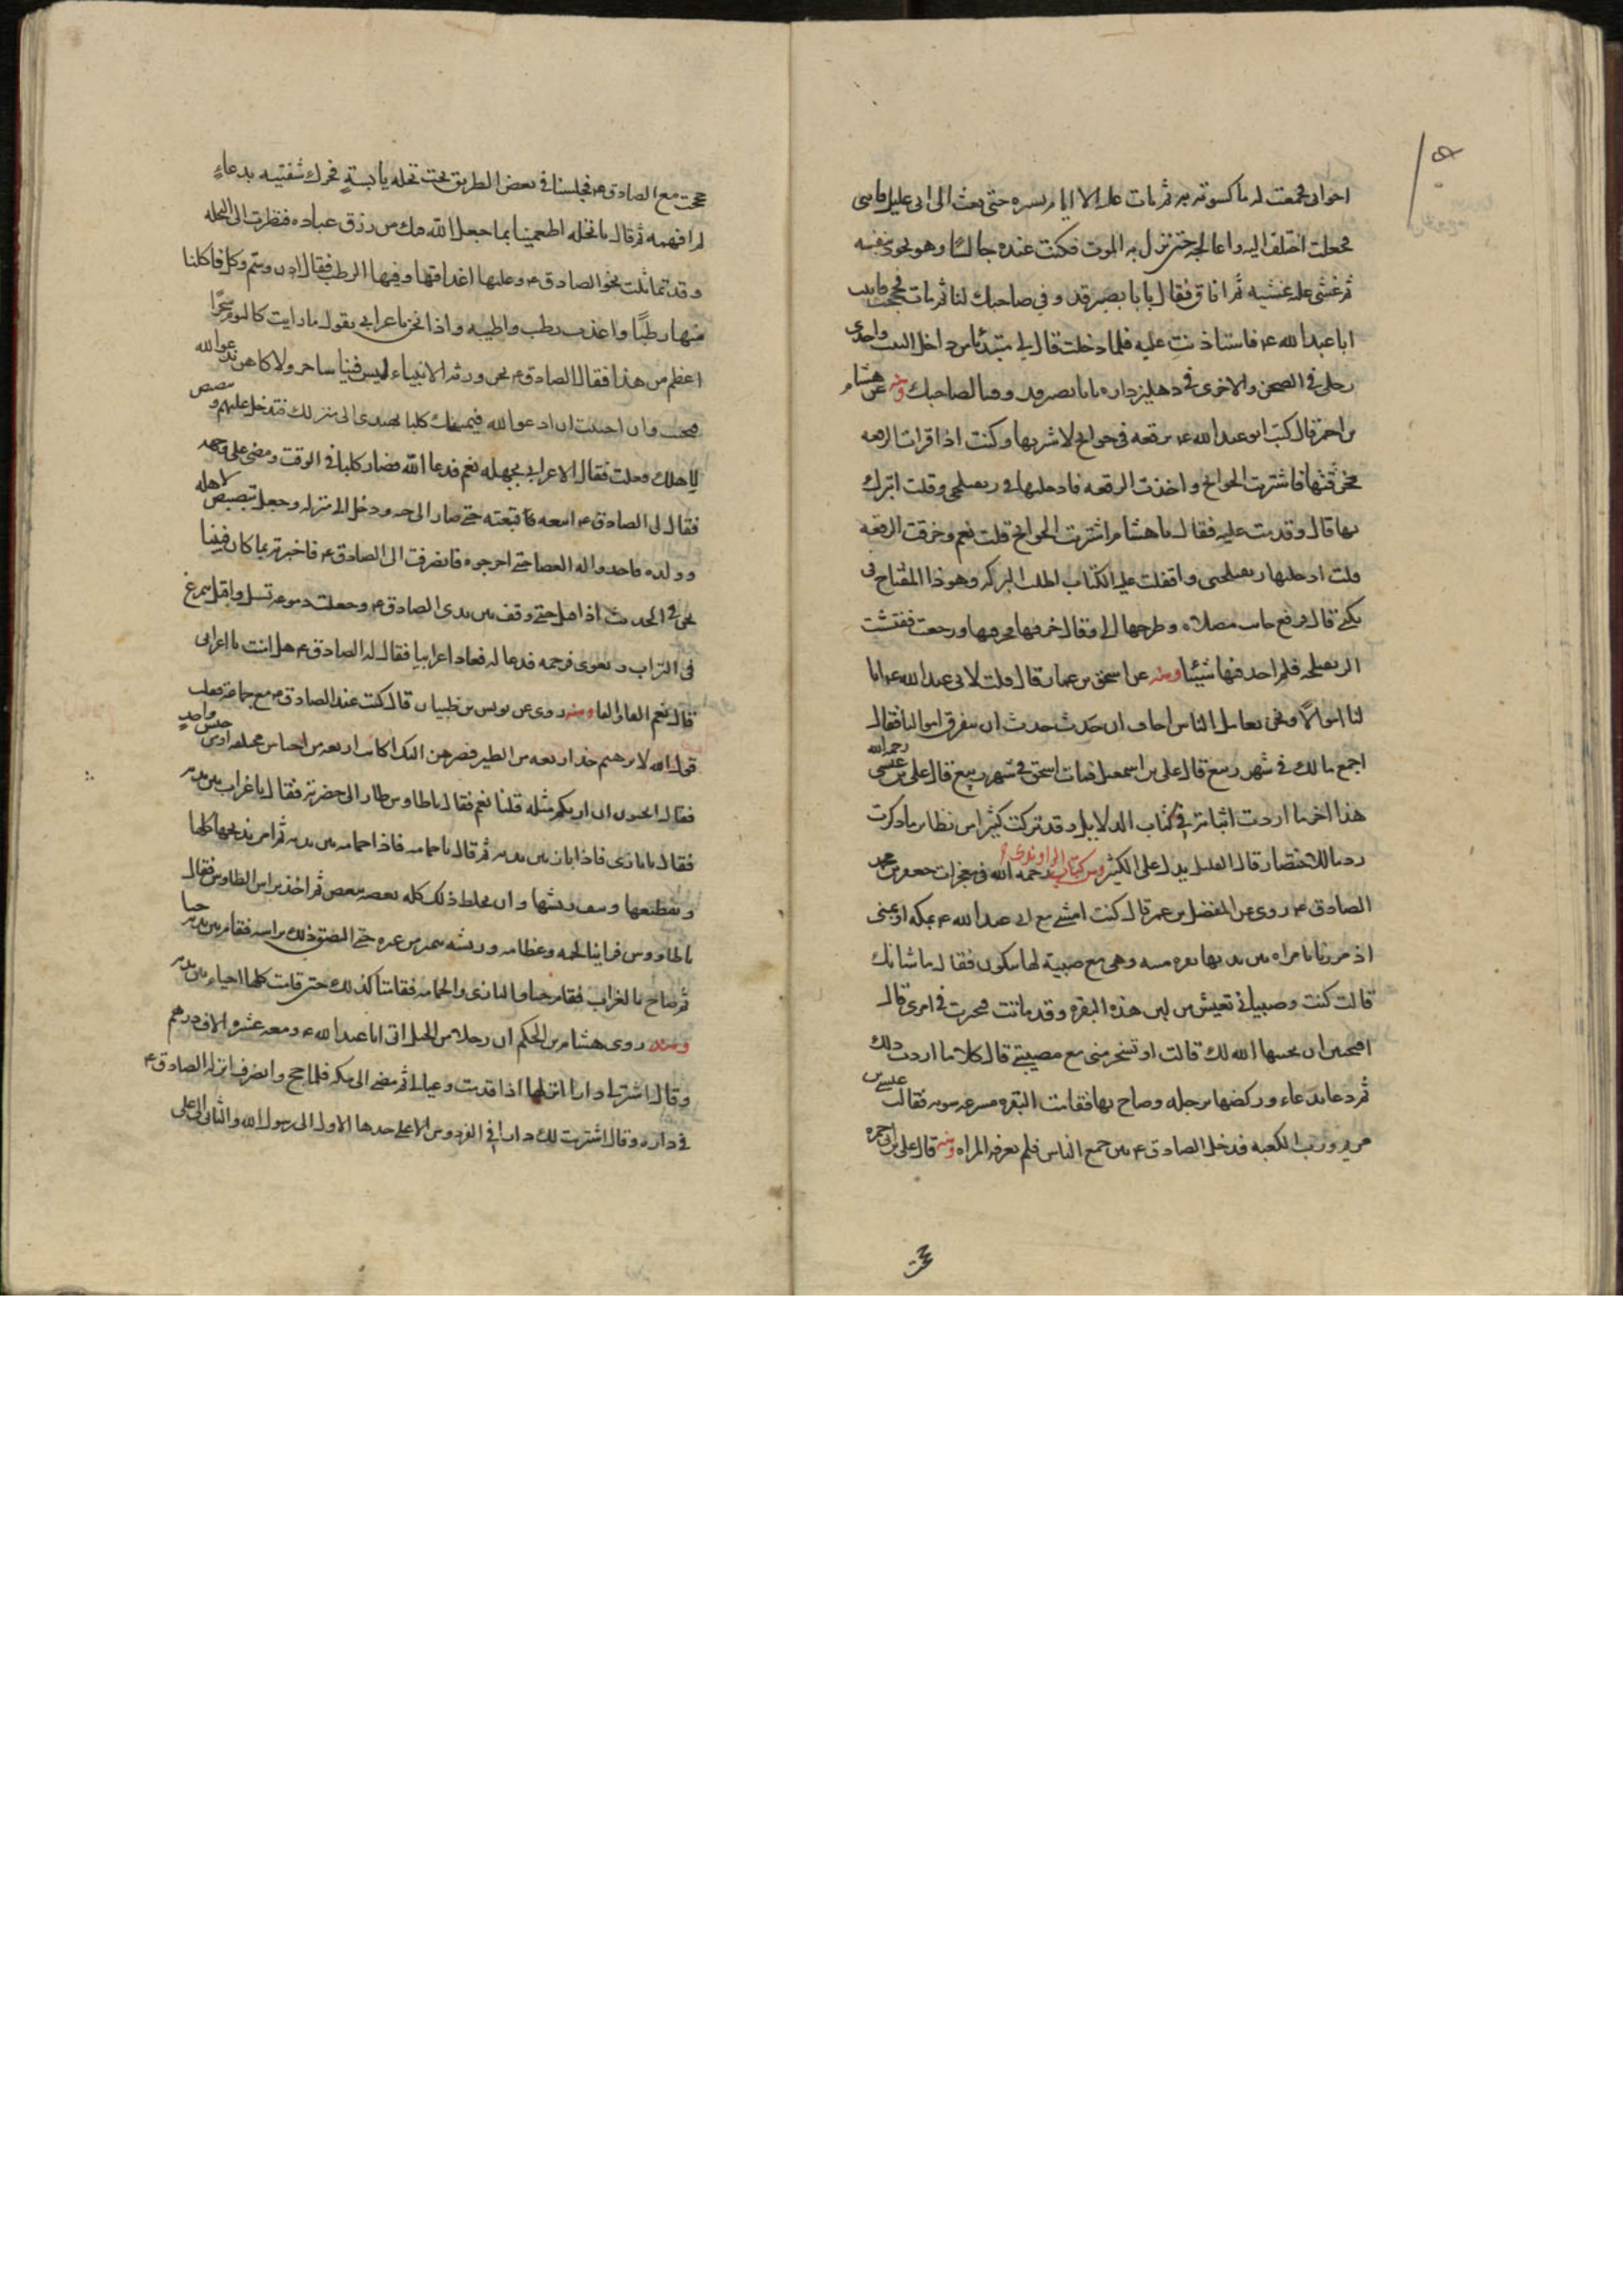 اخوانى فجمعت له ما كسوته به ثم ما اتت عليه الا ايام يسيره حتى بعث الى انى عليل فاتنى
فجعلت اختلف اليه و اعالجه حتى نزل به الموت فكنت عنده جالسا وهو يجود بنفسه
ثم غشى عليه غشيه ثم افاق فقال يا با بصير قد وفى صاحبك لنا ثم مات فحججت فاتيت
ابا عبد الله ع فاستاذنت عليه فلما دخلت قال لى مبتدئا من داخل البيت واحدى
رجلى فى الصحن والاخرى فى دهليز داره يا با بصير قد وفينا لصاحبك ومنه عن هشام
بن احمر قال كتب ابو عبد الله ع رقعه فى حوايج لاشتريها وكنت اذا قرات الرقعه
خرقتها فاشتريت الحوايج واخذت الرقعه فادخلتها فى زنفيلجتى وقلت اتبرك
بها قال وقدمت عليه فقال يا هشام اشتريت الحوايج قلت نعم وخرقت الرقعه
قلت ادخلتها زنفيلجتى واقفلت عليها الباب اطلب البركه وهو ذا المفتاح فى
تكتى قال فرفع جانب مصلاه وطرحها الى وقال خرقها فخرقتها ورجعت ففتشت
الزنفيلجه فلم اجد فيها شيئا ومنه عن اسحق بن عمار قال قلت لابى عبد الله ع ان
لنا اموالا ونحن نعامل الناس اخاف ان حدث حدث ان تفرق اموالنا فقال
اجمع مالك فى شهر ربيع قال على بن اسمعيل فمات اسحق فى شهر ربيع قال على بن عيسى رحمه الله
هذا اخر ما اردت اثباته فى كتاب الدلايل وقد تركت كثيرا من نظاير ما ذكرت
روما للاختصار قال القليل يدل على الكثير ومن كتاب الراوندى رحمه الله فى معجزات جعفر بن محمد
الصادق ع روى عن المفضل بن عمر قال كنت امشى مع ابى عبد الله ع بمكه او بمنى
اذ مررنا بامراه بين يديها بقره ميته وهى مع صبية لها تبكون فقال ما شانك
قالت كنت وصبيانى نعيش من لبن هذه البقره وقد ماتت فتحيرت فى امرى قال
افتحبين ان يحييها الله لك قالت او تسخر منى مع مصيبتى قال كلا ما اردت ذلك
ثم دعا بدعاء وركضها برجله وصاح بها فقامت البقره مسرعه سويه فقالت عيسى بن
مريم ورب الكعبه فدخل الصادق ع بين جمع الناس فلم تعرفه المراه ومنه قال على بن ابى حمزه
حججت
حججت مع الصادق ع فجلسنا فى بعض الطريق تحت نخله يابسة فحرك شفتيه بدعاء
لم افهمه ثم قال يا نخله اطعمينا بما جعل الله فيك من رزق عباده فنظرت الى النخله
وقد تمايلت نحو الصادق ع وعليها اغداقها وفيها الرطب فقال ادن وسم وكل فاكلنا
منها رطبا واعذب رطب واطيبه واذا نحن باعرابى يقول ما رايت كاليوم سحرا
اعظم من هذا فقال الصادق ع نحن ورثه الانبياء ليس فينا ساحر ولا كاهن ندعوا الله
فيجيب وان احببت ان ادعو الله فيمسخك كلبا تهتدى الى منزلك فتدخل عليهم وتبصبص
لاهلك فعلت فقال الاعرابى بجهله نعم فدعا الله فصار كلبا فى الوقت ومضى على وجهه
فقال لى الصادق ع اتبعه فاتبعته حتى صار الى حيه ودخل الى منزله وجعل يبصبص لاهله
وولده فاخذوا له العصا حتى اخرجوه فانصرفت الى الصادق ع فاخبرته بما كان فبينا
نحن فى الحديث اذ اقبل حتى وقف بين يدى الصادق ع وجعلت دموعه تسيل واقبل يتمرغ
فى التراب ويعوى فرحمه فدعا له فعاد اعرابيا فقال له الصادق ع هل امنت يا اعرابى
قال نعم الفا والفا ومنه روى عن يونس بن ظبيان قال كنت عند الصادق ع مع جماعة فقلت
قول الله لابرهيم خذ اربعه من الطير فصرهن اليك اكانت اربعه من اجناس مختلفه او من جنس واحد
فقال اتحبون ان اريكم مثله قلنا نعم فقال يا طاوس فاذا طاوس طار الى حضرته فقال يا غراب فاذا غراب بين يديه
فقال يا بازى فاذا باز بين يديه ثم قال يا حمامه فاذا حمامه بين يديه ثم امر بذبحها كلها
وتقطيعها ونتف ريشها وان يخلط ذلك كله بعضه ببعض ثم اخذ براس الطاوس فقال
يا طاووس فراينا لحمه وعظامه وريشه يتميز من غيره حتى التصق ذلك براسه فقام بين يديه حيا
ثم صاح بالغراب فقام حيا وبالبازى والحمامه فقامتا كذلك حتى قامت كلها احياء بين يديه
ومنه روى هشام بن الحكم ان رجلا من الجبل اتى ابا عبد الله ع ومعه عشره الاف درهم
وقال اشتر لى دارا انزلها اذا قدمت وعيالى ثم مضى الى مكه فلما حج وانصرف انزله الصادق ع
فى داره وقال اشتريت لك دارا فى الفردوس الاعلى حدها الاول الى رسول الله والثانى الى على